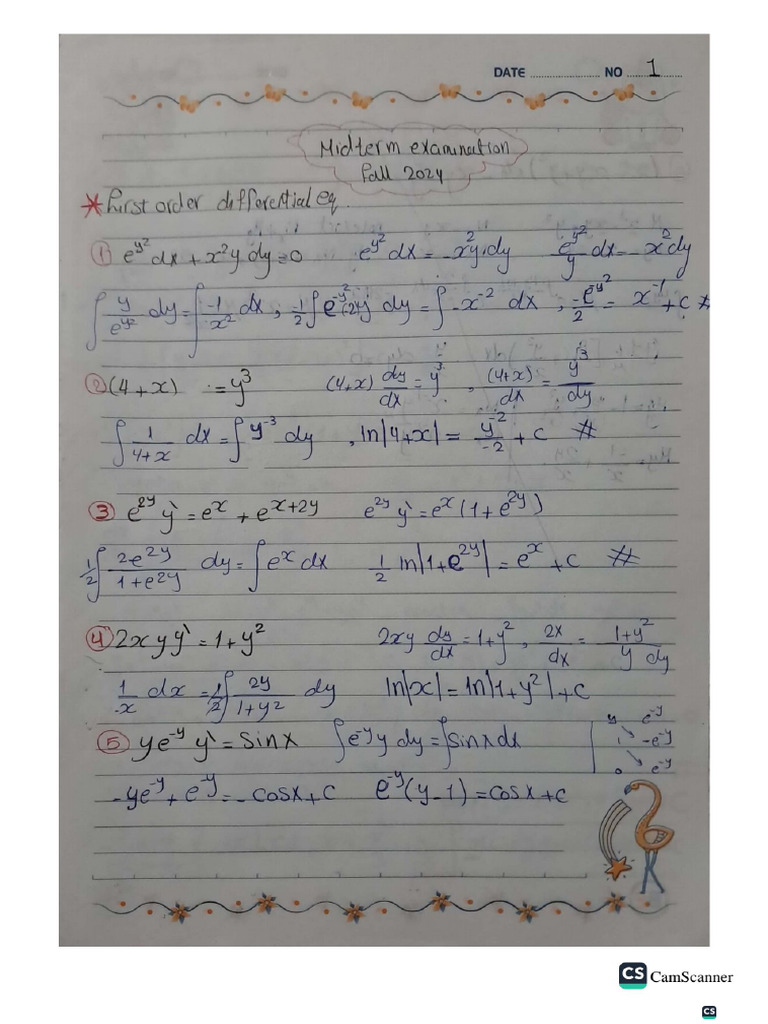 DATE ............ NO ...1...
Midterm examination
Fall 2024
* First order differential eq.
① e^{y^2} dx + x^2 y dy = 0    e^{y^2} dx = -x^2 y . dy    e^{y^2}/y dx = -x^2 dy
∫ y/e^{y^2} dy = ∫ -1/x^2 dx , -1/2 ∫ e^{-y^2} (-2y) dy = ∫ -x^{-2} dx , -e^{y^2}/2 = x^{-1} + c #
② (4+x) = y^3    (4+x) dy/dx = y^3 , (4+x)/dx = y^3/dy
∫ 1/(4+x) dx = ∫ y^{-3} dy , ln|4+x| = y^{-2}/-2 + c #
③ e^{2y} y` = e^x + e^{x+2y}    e^{2y} y` = e^x (1 + e^{2y})
1/2 ∫ 2e^{2y}/(1+e^{2y}) dy = ∫ e^x dx    1/2 ln|1+e^{2y}| = e^x + c #
④ 2xyy` = 1+y^2    2xy dy/dx = 1+y^2 , 2x/dx = 1+y^2/y dy
1/x dx = 1/2 ∫ 2y/(1+y^2) dy    ln|x| = ln|1+y^2| + c
⑤ ye^{-y} y` = sinx    ∫ e^{-y} y dy = ∫ sinx dx    y e^{-y}
1 -e^{-y}
0 e^{-y}
-ye^{-y} + e^{-y} = -cosx + c    e^{-y}(y-1) = cosx + c
CS CamScanner
CS